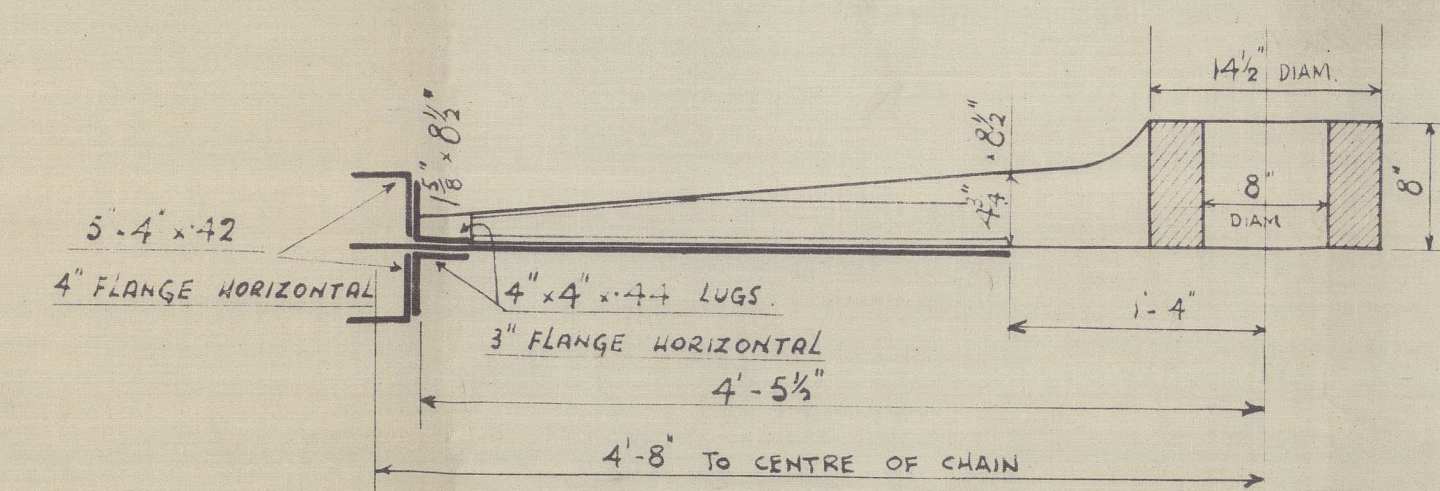 14½" DIAM.
1⅝" × 8½"
4¾" × 8½"
8"
8"
DIAM
5" × 4" × ·42
4" FLANGE HORIZONTAL
4" × 4" × ·44 LUGS.
3" FLANGE HORIZONTAL
1'-4"
4'-5½"
4'-8" TO CENTRE OF CHAIN